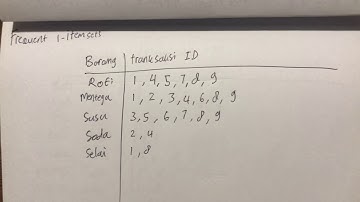 Frequent 1-itemsets
Barang | tranksaksi ID
Roti | 1, 4, 5, 7, 8, 9
Mentega | 1, 2, 3, 4, 6, 8, 9
Susu | 3, 5, 6, 7, 8, 9
Soda | 2, 4
Selai | 1, 8